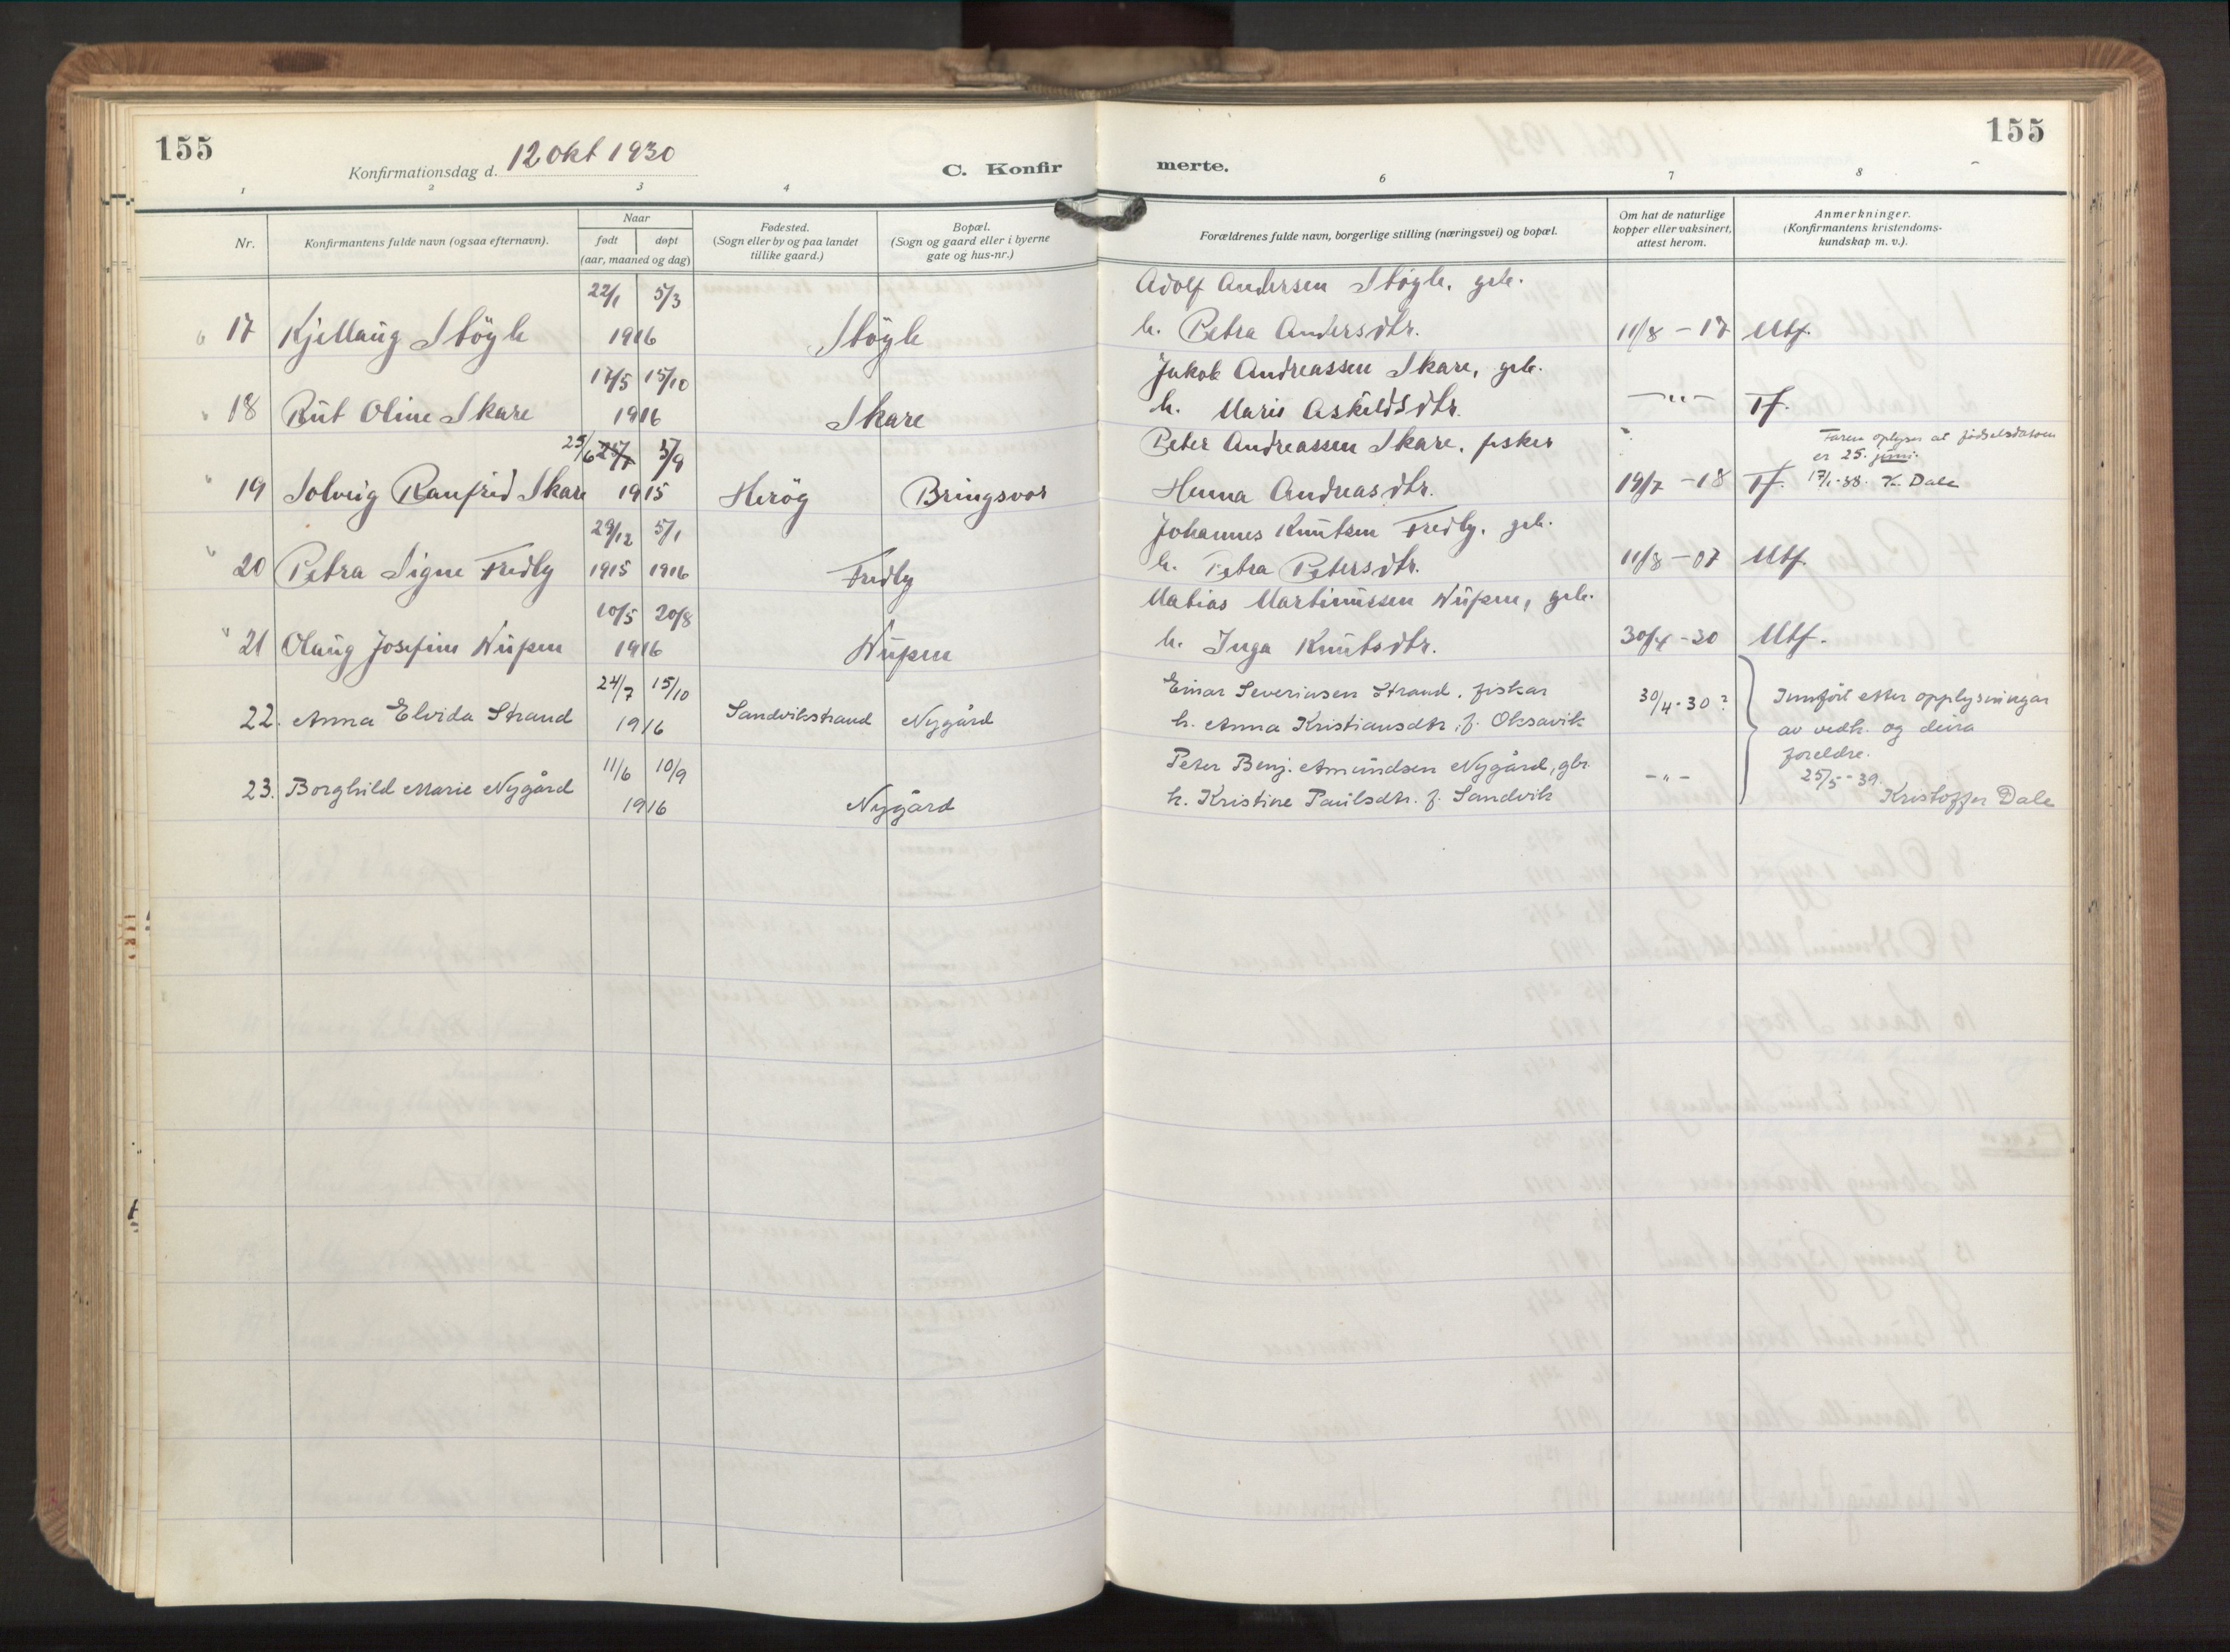 155
Konfirmationsdag d. 12 okt 1930
C. Konfir
merte.
155
1 2 3 4 6 7 8
Nr.
Konfirmantens fulde navn (ogsaa efternavn).
Naar
født døpt
(aar, maaned og dag)
Fødested.
(Sogn eller by og paa landet
tillike gaard.)
Bopæl.
(Sogn og gaard eller i byerne
gate og hus-nr.)
Forældrenes fulde navn, borgerlige stilling (næringsvei) og bopæl.
Om hat de naturlige
kopper eller vaksinert,
attest herom.
Anmerkninger.
(Konfirmantens kristendoms-
kundskap m. v.).
22/1 5/3 Adolf Andersen Støyle, grb.
17 Kjellaug Støyle 1916 Støyle h. Petra Andersdtr. 11/8 - 17 Mtf.
17/5 15/10 Jakob Andreassen Skare, grb.
18 Rut Oline Skare 1916 Skare h. Marie Askildsdtr. -"- Tf.
25/6 5/9 Peter Andreassen Skare, fisker Faren oplyser at fødselsdatoen
er 25. juni.
19 Solveig Ranfrid Skare 1915 Herøy Bringsvor Henna Andreasdtr. 19/7 - 18 Tf. 17/1-38. K. Dale
29/12 5/1 Johannes Knutsen Fredly, grb.
20 Petra Signe Fredly 1915 1916 Fredly h. Petra Petersdtr. 11/8 - 07 Mtf.
10/5 20/8 Matias Martinussen Nupen, grb.
21 Olaug Josefine Nupen 1916 Nupen h. Inga Knutsdtr. 30/4 - 30 Mtf.
24/7 15/10 Einar Severinsen Strand, fiskar 30/4 - 30? Innført etter opplysningar
22. Anna Elvida Strand 1916 Sandvikstrand Nygård h. Anna Kristiansdtr. f. Oksavik av vedk. og deira
foreldre.
11/6 10/9 Peter Benj. Amundsen Nygård, gbr. -"- 25/5-39.
23. Borghild Marie Nygård 1916 Nygård h. Kristine Paulsdtr. f. Sandvik Kristoffer Dale